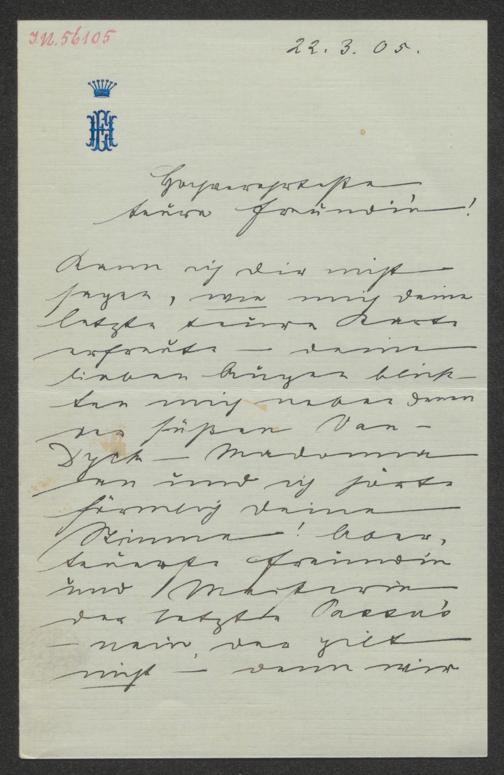 I.N. 56105
22. 3. 05.
EH
Hochverehrteste
teure Freundin!
Kann ich Dir nicht
sagen, wie mich deine
letzte teure Karte
erfreute — deine
lieben Augen blick-
ten mich neben denen
der süßen Van-
Dyck-Madonna
an und ich hörte
förmlich deine
Stimme! Aber,
teuerste Freundin
und Meisterin
der letzte Passus
— nein, das gilt
nicht — denn wir